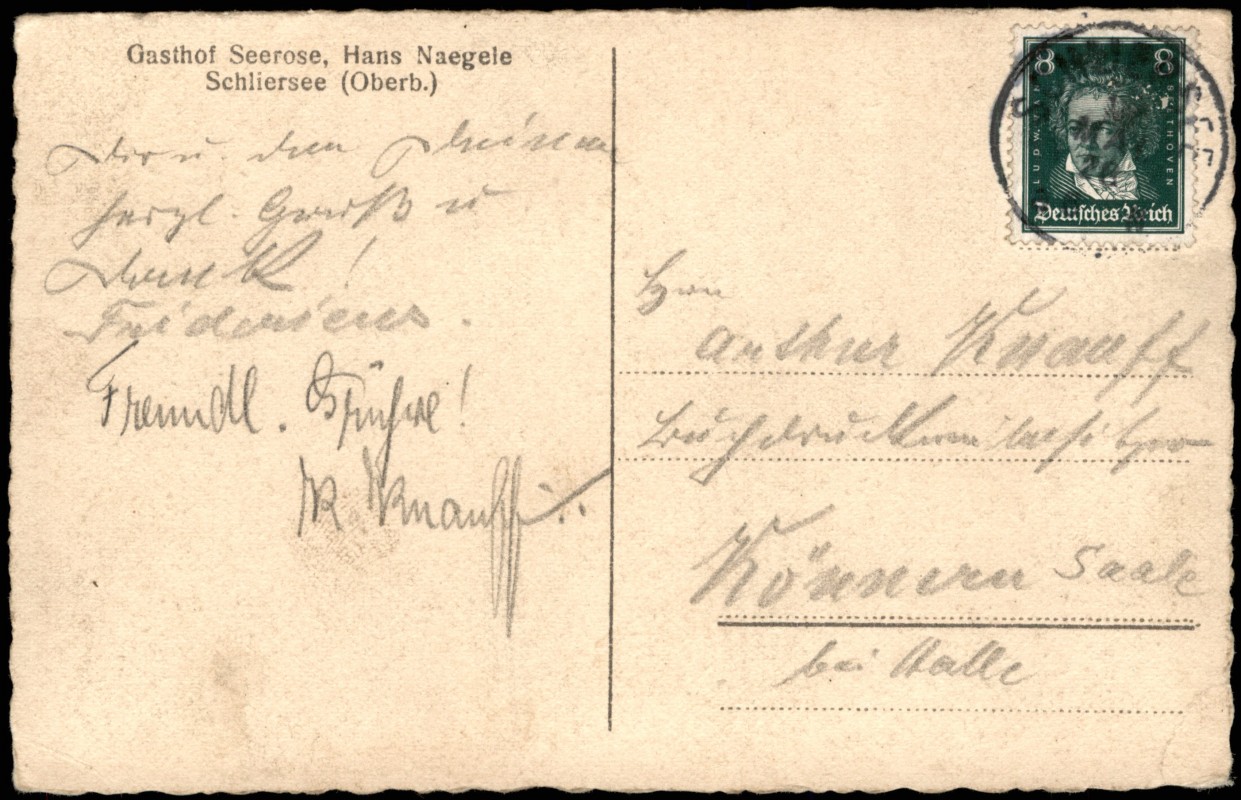 Gasthof Seerose, Hans Naegele
Schliersee (Oberb.)
Dir u. den Deinen
herzl. Gruß u
Dank!
Freundl. Grüße!
Knauff
8 8
LUDW. V. BEETHOVEN
Deutsches Reich
Herrn
Arthur Knauff
Buchdruckereibesitzer
Könnern Saale
bei Halle